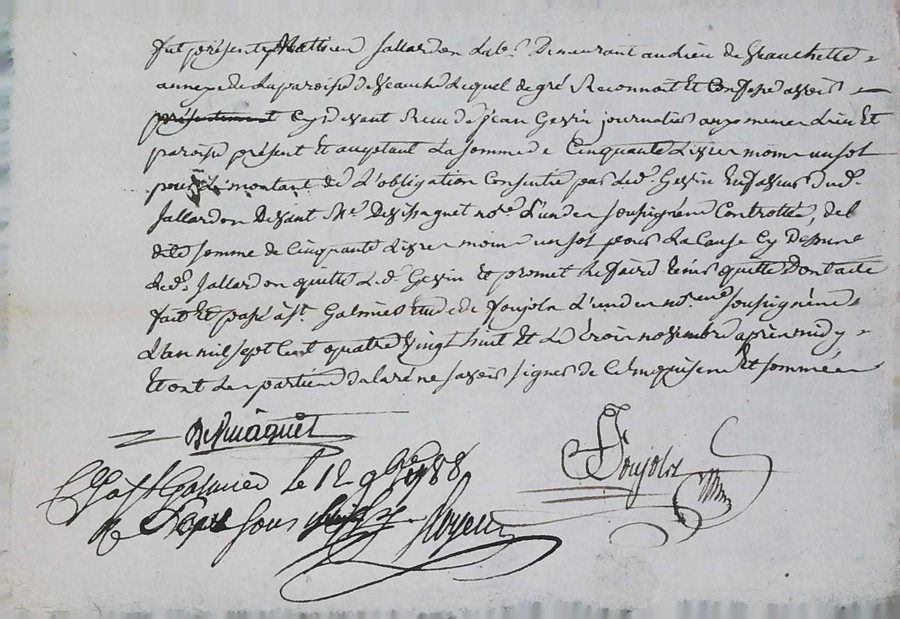 fut présent Mathieu Jallardon lab.r Demeurant au lieu de Veauchette
annexe de la paroisse de Veauche lequel de gré Reconnoit Et Confesse avoir
présentement Cy devant Receu de Jean Gessin journalier aux memes lieu Et
paroisse présent Et acceptant la somme de Cinquante livres moins un sol
pour le montant de L'obligation Consentie par led. Gessin En faveur dud.
Jallardon Devant Me. notre. L'un des soussignés Controllée, de la
dite somme de Cinquante Livres moins un sol pour la Cause Cy Dessus
led. Jallardon quitte L.d. Gessin Et promet le faire tenir quitte Dont acte
fait Et passé à St. Galmier Etude de Poujols L'un des notaires soussignés
L'an mil sept Cent quatre Vingt huit Et le trois novembre après midy
Et ont les parties declaré ne savoir signer de ce Enquises Et sommées
Poujols
a St Galmier le 12 9bre 1788
sous